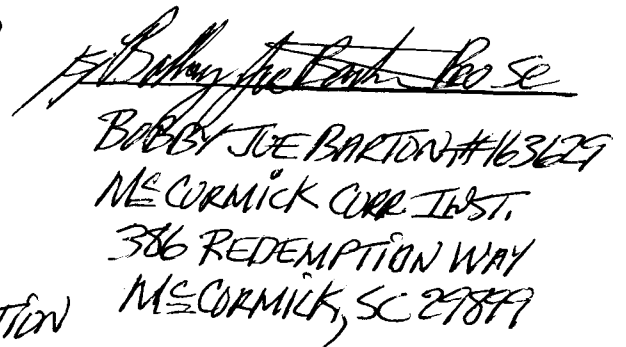 s/ Bobby Joe Barton Pro Se
BOBBY JOE BARTON #163629
McCORMICK CORR. INST.
386 REDEMPTION WAY
McCORMICK, SC 29899
TION